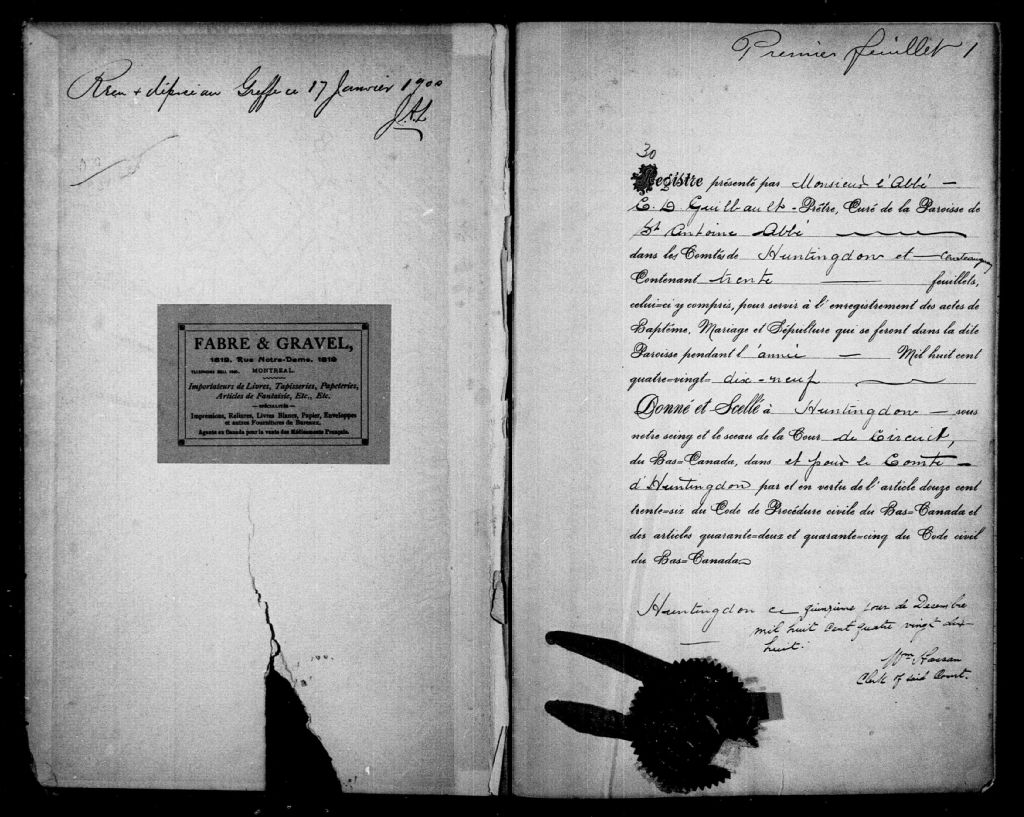 Recu & déposé au Greffe ce 17 Janvier 1900
J.A.L
FABRE & GRAVEL,
1619, Rue Notre-Dame, 1619
MONTREAL.
Importateurs de Livres, Tapisseries, Papeteries,
Articles de Fantaisie, Etc., Etc.
SPÉCIALITÉS
Impressions, Reliures, Livres Blancs, Papier, Enveloppes
et autres Fournitures de Bureaux.
Agents en Canada pour la vente des Médicaments Français.
Premier feuillet 1
30
Registre présenté par Monsieur l'Abbé —
E. D. Guilbault - Prêtre, Curé de la Paroisse de
St Antoine Abbé
dans les Comtés de Huntingdon et — Chateauguay
Contenant trente — feuillets,
celui=ci y compris, pour servir à l'enregistrement des actes de
Baptême, Mariage et Sépulture qui se feront dans la dite
Paroisse pendant l'année — Mil huit cent
quatre=vingt= dix-neuf
Donné et Scellé à Huntingdon — sous
notre seing et le sceau de la Cour de Circuit,
du Bas=Canada, dans et pour le Comté —
d'Huntingdon par et en vertu de l'article douze cent
trente=six du Code de Procédure civile du Bas=Canada et
des articles quarante=deux et quarante=cinq du Code civil
du Bas=Canada
Huntingdon ce quinzieme jour de Decembre
mil huit cent quatre vingt dix
huit.
Wm
Clerk of said Court.